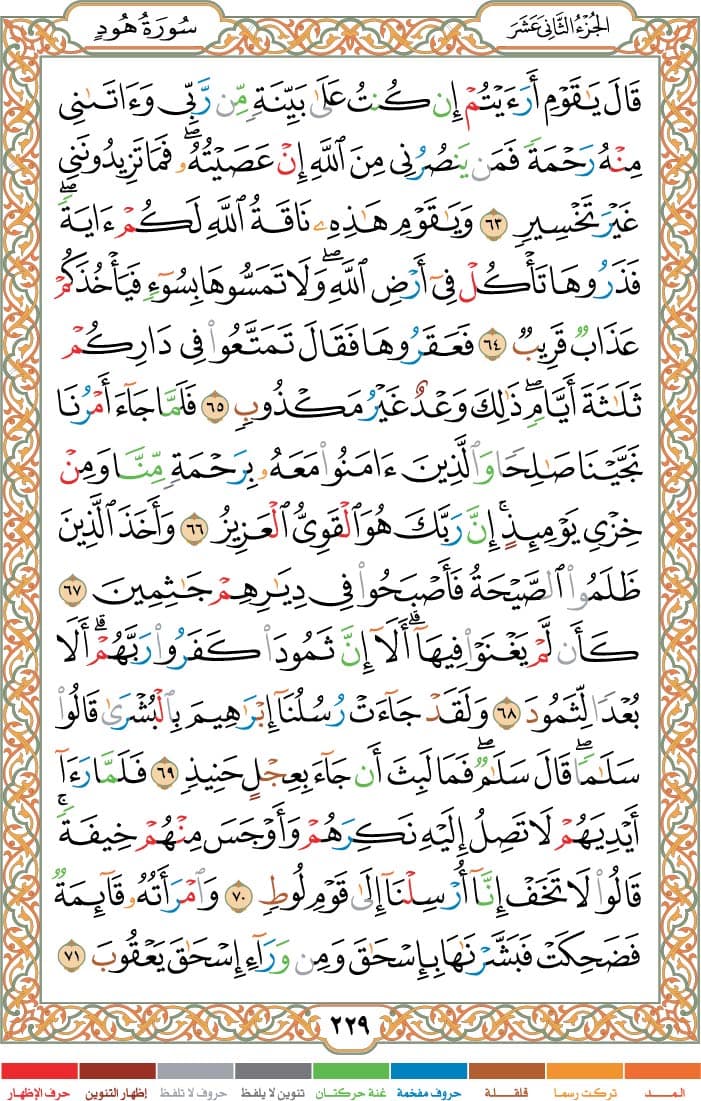 الجزء الثاني عشر
سورة هود
قَالَ يَٰقَوْمِ أَرَءَيْتُمْ إِن كُنتُ عَلَىٰ بَيِّنَةٍ مِّن رَّبِّى وَءَاتَىٰنِى
مِنْهُ رَحْمَةً فَمَن يَنصُرُنِى مِنَ ٱللَّهِ إِنْ عَصَيْتُهُۥ ۖ فَمَا تَزِيدُونَنِى
غَيْرَ تَخْسِيرٍ ٦٣ وَيَٰقَوْمِ هَٰذِهِۦ نَاقَةُ ٱللَّهِ لَكُمْ ءَايَةً ۖ
فَذَرُوهَا تَأْكُلْ فِىٓ أَرْضِ ٱللَّهِ ۖ وَلَا تَمَسُّوهَا بِسُوٓءٍ فَيَأْخُذَكُمْ
عَذَابٌ قَرِيبٌ ٦٤ فَعَقَرُوهَا فَقَالَ تَمَتَّعُوا۟ فِى دَارِكُمْ
ثَلَٰثَةَ أَيَّامٍ ۖ ذَٰلِكَ وَعْدٌ غَيْرُ مَكْذُوبٍ ٦٥ فَلَمَّا جَآءَ أَمْرُنَا
نَجَّيْنَا صَٰلِحًا وَٱلَّذِينَ ءَامَنُوا۟ مَعَهُۥ بِرَحْمَةٍ مِّنَّا وَمِنْ
خِزْىِ يَوْمِئِذٍ ۗ إِنَّ رَبَّكَ هُوَ ٱلْقَوِىُّ ٱلْعَزِيزُ ٦٦ وَأَخَذَ ٱلَّذِينَ
ظَلَمُوا۟ ٱلصَّيْحَةُ فَأَصْبَحُوا۟ فِى دِيَٰرِهِمْ جَٰثِمِينَ ٦٧
كَأَن لَّمْ يَغْنَوْا۟ فِيهَآ ۗ أَلَآ إِنَّ ثَمُودَا۟ كَفَرُوا۟ رَبَّهُمْ ۗ أَلَا
بُعْدًا لِّثَمُودَ ٦٨ وَلَقَدْ جَآءَتْ رُسُلُنَآ إِبْرَٰهِيمَ بِٱلْبُشْرَىٰ قَالُوا۟
سَلَٰمًا ۖ قَالَ سَلَٰمٌ ۖ فَمَا لَبِثَ أَن جَآءَ بِعِجْلٍ حَنِيذٍ ٦٩ فَلَمَّا رَءَآ
أَيْدِيَهُمْ لَا تَصِلُ إِلَيْهِ نَكِرَهُمْ وَأَوْجَسَ مِنْهُمْ خِيفَةً ۚ
قَالُوا۟ لَا تَخَفْ إِنَّآ أُرْسِلْنَآ إِلَىٰ قَوْمِ لُوطٍ ٧٠ وَٱمْرَأَتُهُۥ قَآئِمَةٌ
فَضَحِكَتْ فَبَشَّرْنَٰهَا بِإِسْحَٰقَ وَمِن وَرَآءِ إِسْحَٰقَ يَعْقُوبَ ٧١
٢٢٩
المــد تركت رسما قلقـلة حروف مفخمة غنة حركتـان تنوين لا يلفظ حروف لا تلفظ إظهار التنوين حرف الإظهار